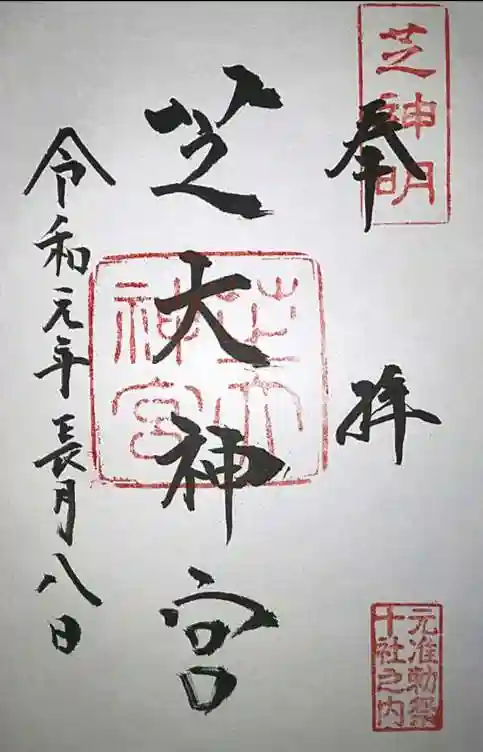 芝神明
奉拝
芝大神宮
芝大神宮
令和元年長月八日
元准勅祭
十社之内